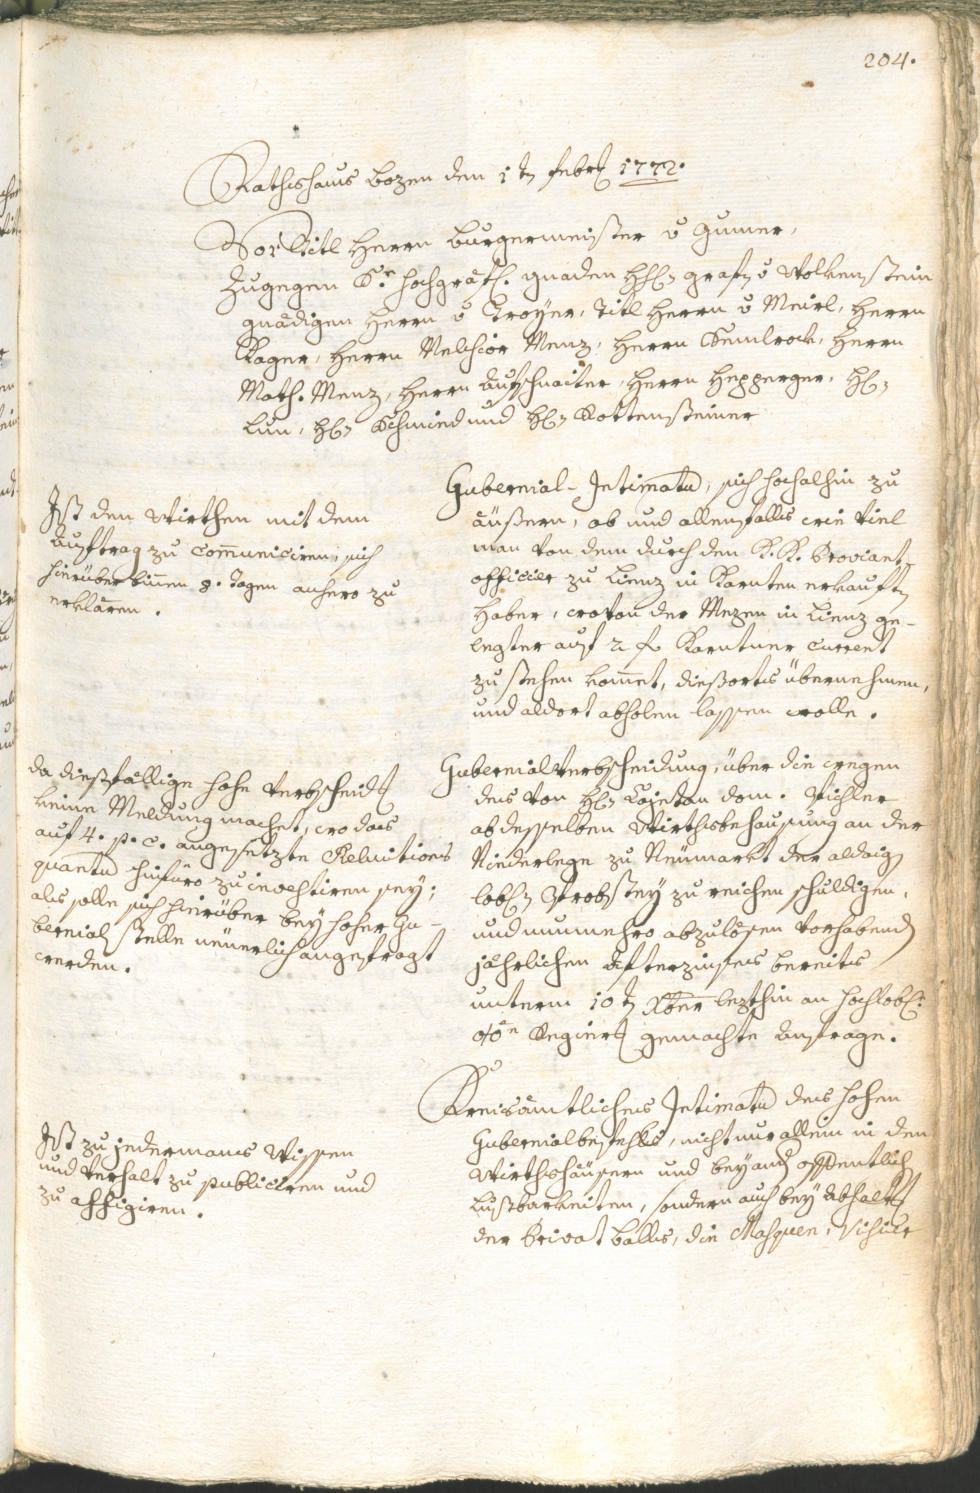 204.
Rathshaus Bozen den 1t Febr 1772.
Vor Titl Herrn Burgermeister v Gumer,
Zugegen Sr hochgräfl. gnaden HH grafn v Wolkenstein
gnädigen Herrn v Troyer, Titl Herrn v Meirl, Herrn
Rager, Herrn Melchior Menz, Herrn Hemlrock, Herrn
Math. Menz, Herrn Aufschnaiter, Herrn Hepperger, H
Lun, H Schmied und H Kottensteiner
Ist den Wirthen mit dem
Auftrag zu Com̄uniciren, sich
hierüber bin̄en 8. Tagen anhero zu
erklären.
Gubernial-Intimatu, sich hochalhin zu
äußern, ob und allenfalls wie viel
man von dem durch den K. K. Proviant
officier zu Lienz in Karnten erkauftn
Haber, wovon der Mezen in Lienz ge-
legter auf 2 f Karntner Current
zu stehen kom̄et, dießorts übernehmen,
und aldort abholen lassen wolle.
da dießfällige hohe Verbscheid
keine Meldung machet, wo das
auf 4. p. C. angesetzte Reluitions
quantu hinfüro zu investiren sey;
als solle sich hierüber bey hoher Gu-
bernial stelle neüerlich angefragt
werden.
Gubernialverbscheidung, über die wegen
des von H Cajetan dom. Pichler
ab desselben Wirthsbehausung an der
Niderlege zu Neümarkt der aldaig
lobl Probstey zu reichen schuldigen,
und nunmehro abzulösen vorhabend
jährlichen Afterzinsens bereits
unterm 10t Xber lezthin an hochlobl:
Regier gemachte Anfrage.
Ist zu jedermans Wissen
und Verhalt zu publiciren und
zu affigiren.
Kreisämtliches Intimatu des hohen
Gubernialbefehls, nicht nur allein in den
Wirthshäusern und bey and offentlich
Lustbarkeiten, sondern auch bey Abhalt
der Privat bälls, die Masquen, Visier